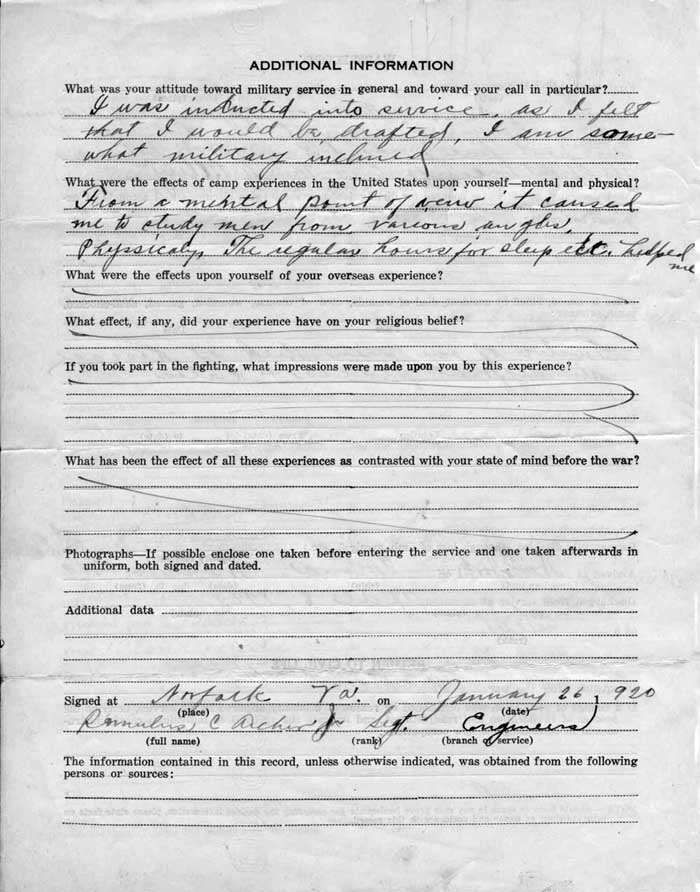 ADDITIONAL INFORMATION
What was your attitude toward military service in general and toward your call in particular?
I was inducted into service, as I felt
that I would be drafted, I am some-
what military inclined
What were the effects of camp experiences in the United States upon yourself—mental and physical?
From a mental point of view it caused
me to study men from various angles,
Physicaly, The regular hours for sleep etc. helped
me
What were the effects upon yourself of your overseas experience?
What effect, if any, did your experience have on your religious belief?
If you took part in the fighting, what impressions were made upon you by this experience?
What has been the effect of all these experiences as contrasted with your state of mind before the war?
Photographs—If possible enclose one taken before entering the service and one taken afterwards in
uniform, both signed and dated.
Additional data
Signed at Norfolk Va. on January 26, 1920
(place) (date)
C Archer Jr Sgt. Engineers
(full name) (rank) (branch of service)
The information contained in this record, unless otherwise indicated, was obtained from the following
persons or sources: